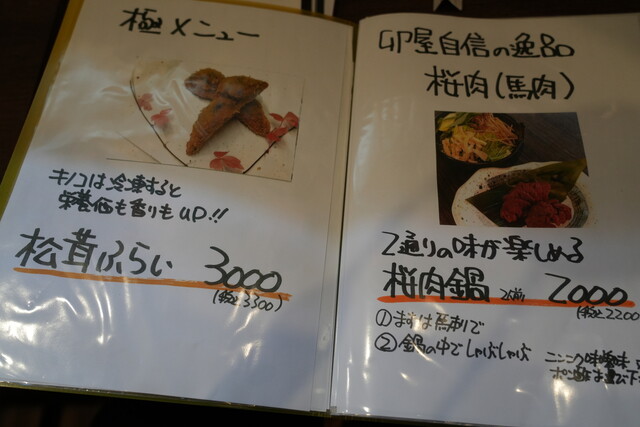 極メニュー
キノコは冷凍すると
栄養価も香りもUP!!
松茸ふらい 3000
(税込3300)
卯屋自信の逸品
桜肉(馬肉)
2通りの味が楽しめる
桜肉鍋 2人前 2000
(税込2200
①まずは馬刺しで
②鍋の中でしゃぶしゃぶ
ニンニク味噌